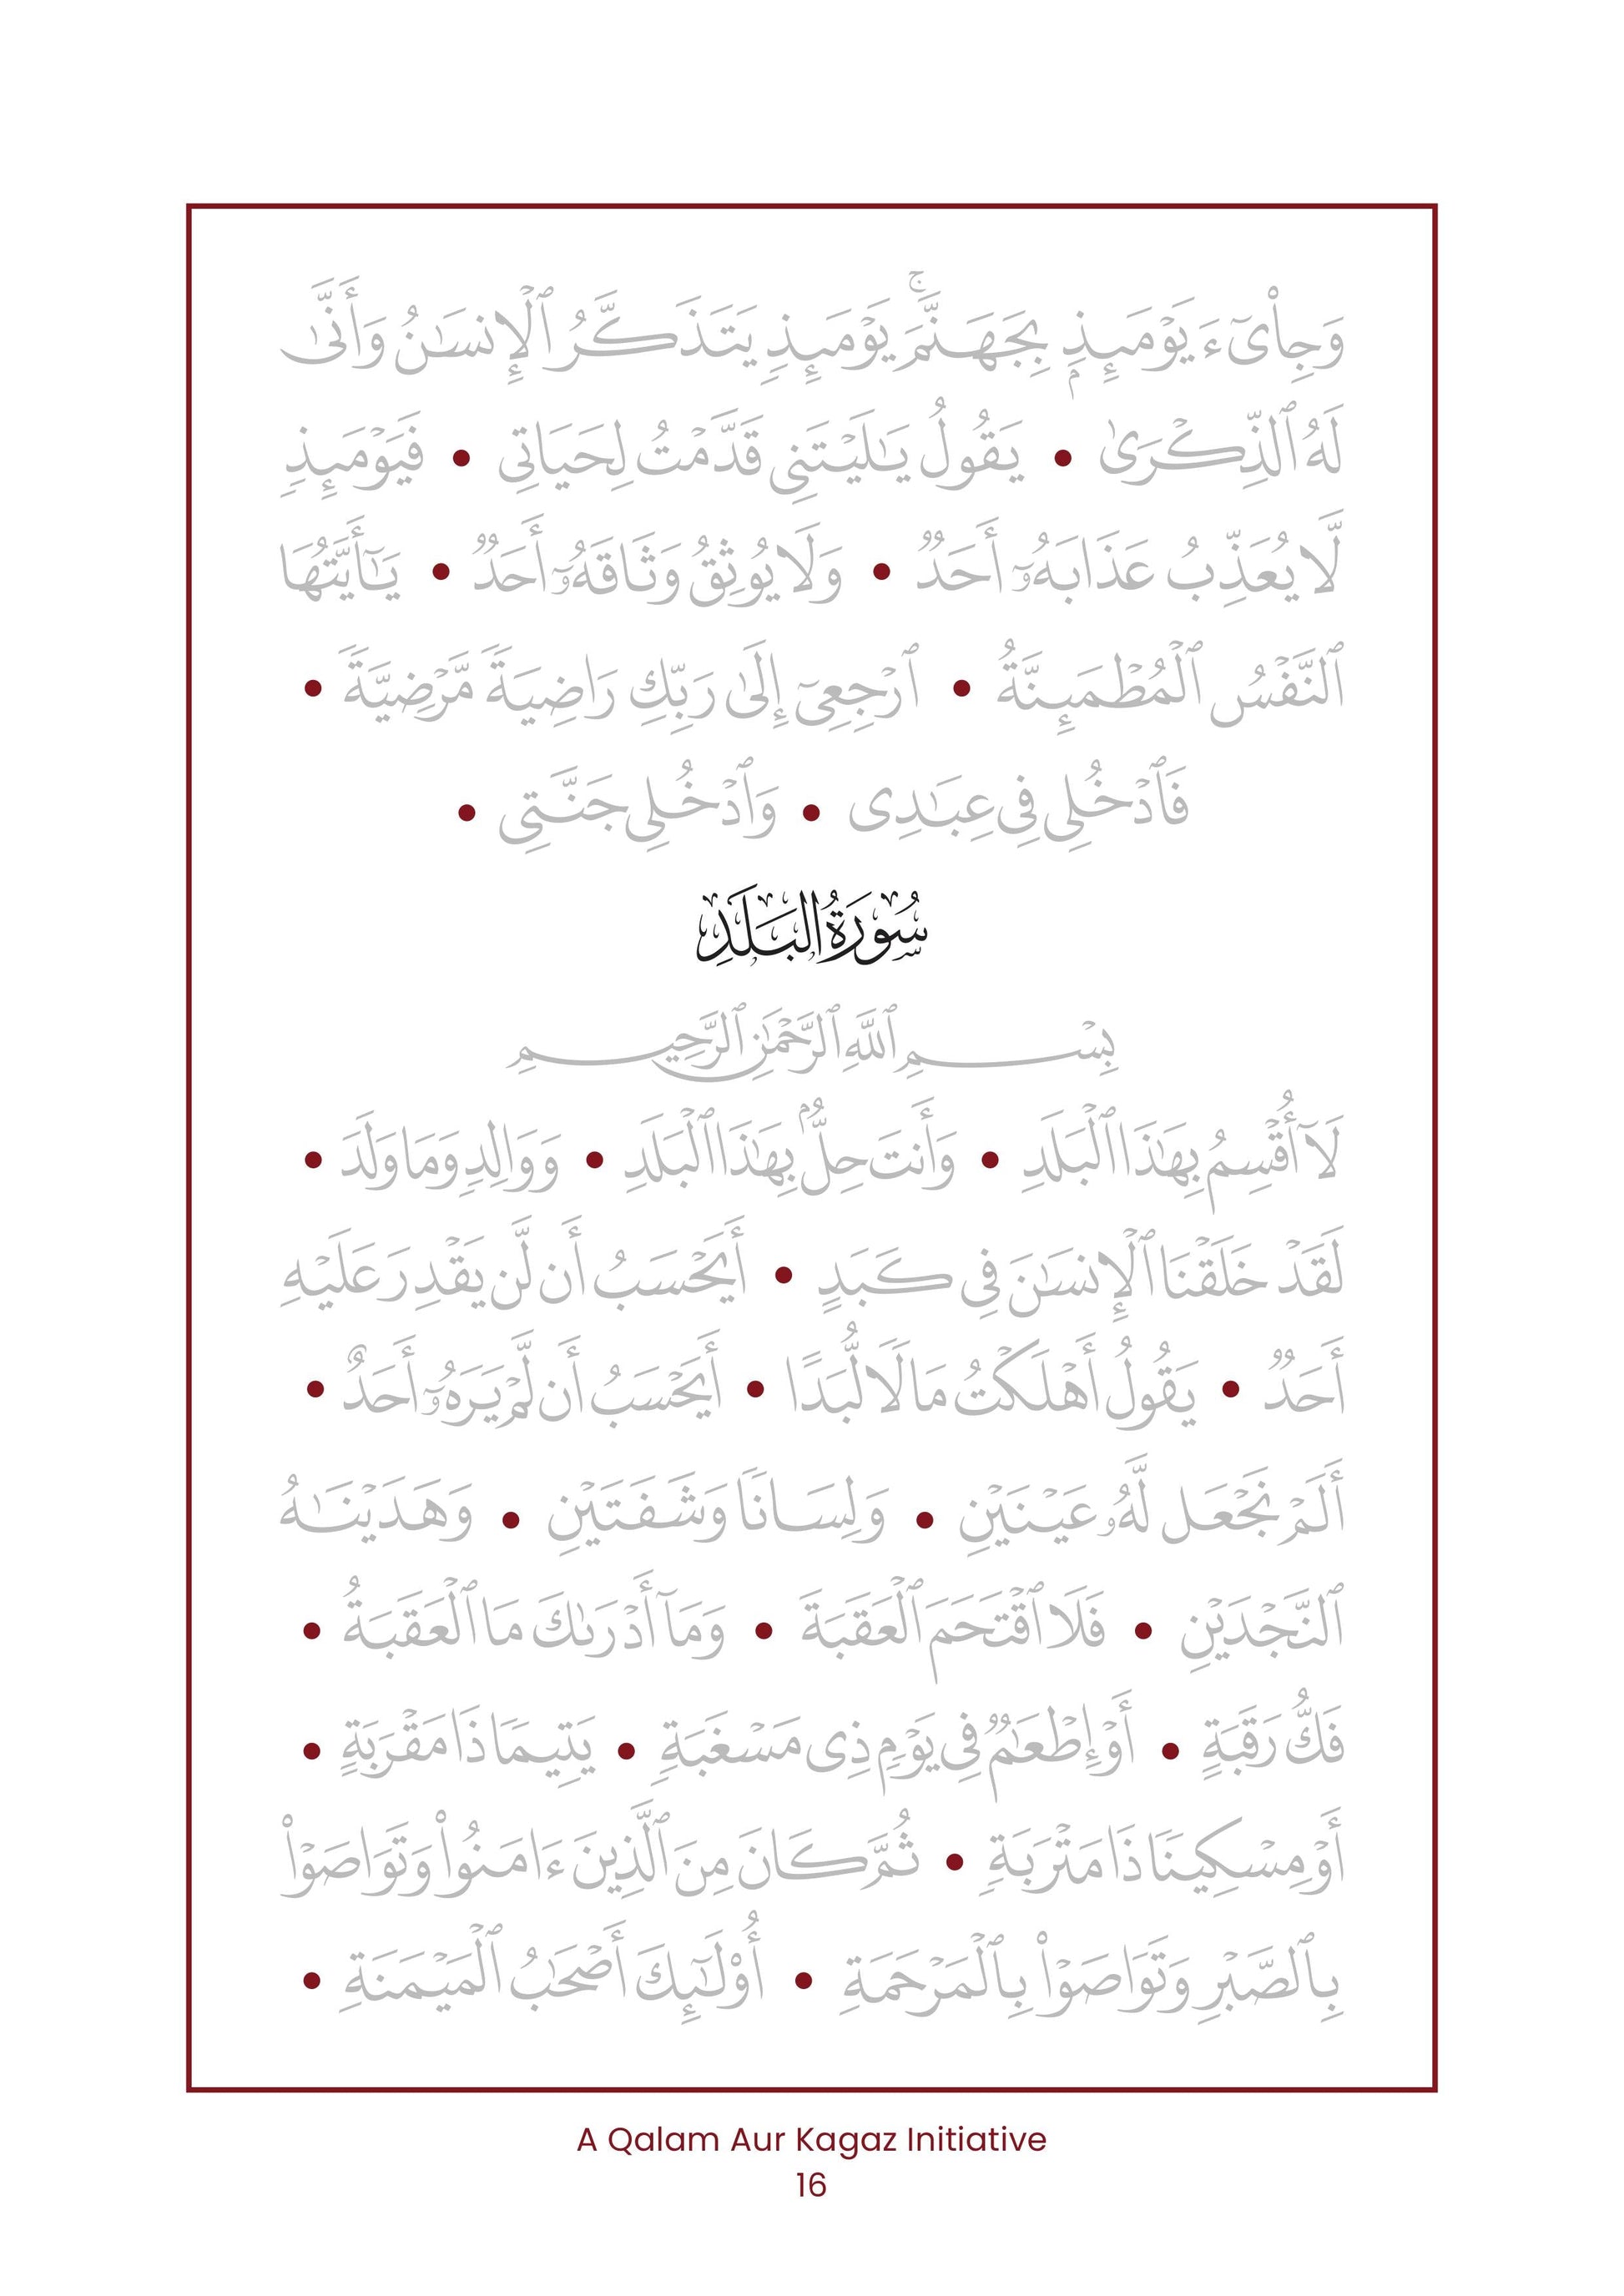 وَجِا۟ىٓءَ يَوْمَئِذٍۭ بِجَهَنَّمَ ۚ يَوْمَئِذٍ يَتَذَكَّرُ ٱلْإِنسَـٰنُ وَأَنَّىٰ
لَهُ ٱلذِّكْرَىٰ • يَقُولُ يَـٰلَيْتَنِى قَدَّمْتُ لِحَيَاتِى • فَيَوْمَئِذٍ
لَّا يُعَذِّبُ عَذَابَهُۥٓ أَحَدٌ • وَلَا يُوثِقُ وَثَاقَهُۥٓ أَحَدٌ • يَـٰٓأَيَّتُهَا
ٱلنَّفْسُ ٱلْمُطْمَئِنَّةُ • ٱرْجِعِىٓ إِلَىٰ رَبِّكِ رَاضِيَةً مَّرْضِيَّةً •
فَٱدْخُلِى فِى عِبَـٰدِى • وَٱدْخُلِى جَنَّتِى •
سُورَةُ البَلَدِ
بِسْمِ ٱللَّهِ ٱلرَّحْمَـٰنِ ٱلرَّحِيمِ
لَآ أُقْسِمُ بِهَـٰذَا ٱلْبَلَدِ • وَأَنتَ حِلٌّۢ بِهَـٰذَا ٱلْبَلَدِ • وَوَالِدٍ وَمَا وَلَدَ •
لَقَدْ خَلَقْنَا ٱلْإِنسَـٰنَ فِى كَبَدٍ • أَيَحْسَبُ أَن لَّن يَقْدِرَ عَلَيْهِ
أَحَدٌ • يَقُولُ أَهْلَكْتُ مَالًا لُّبَدًا • أَيَحْسَبُ أَن لَّمْ يَرَهُۥٓ أَحَدٌ •
أَلَمْ نَجْعَل لَّهُۥ عَيْنَيْنِ • وَلِسَانًا وَشَفَتَيْنِ • وَهَدَيْنَـٰهُ
ٱلنَّجْدَيْنِ • فَلَا ٱقْتَحَمَ ٱلْعَقَبَةَ • وَمَآ أَدْرَىٰكَ مَا ٱلْعَقَبَةُ •
فَكُّ رَقَبَةٍ • أَوْ إِطْعَـٰمٌ فِى يَوْمٍ ذِى مَسْغَبَةٍ • يَتِيمًا ذَا مَقْرَبَةٍ •
أَوْ مِسْكِينًا ذَا مَتْرَبَةٍ • ثُمَّ كَانَ مِنَ ٱلَّذِينَ ءَامَنُوا۟ وَتَوَاصَوْا۟
بِٱلصَّبْرِ وَتَوَاصَوْا۟ بِٱلْمَرْحَمَةِ • أُو۟لَـٰٓئِكَ أَصْحَـٰبُ ٱلْمَيْمَنَةِ •
A Qalam Aur Kagaz Initiative
16